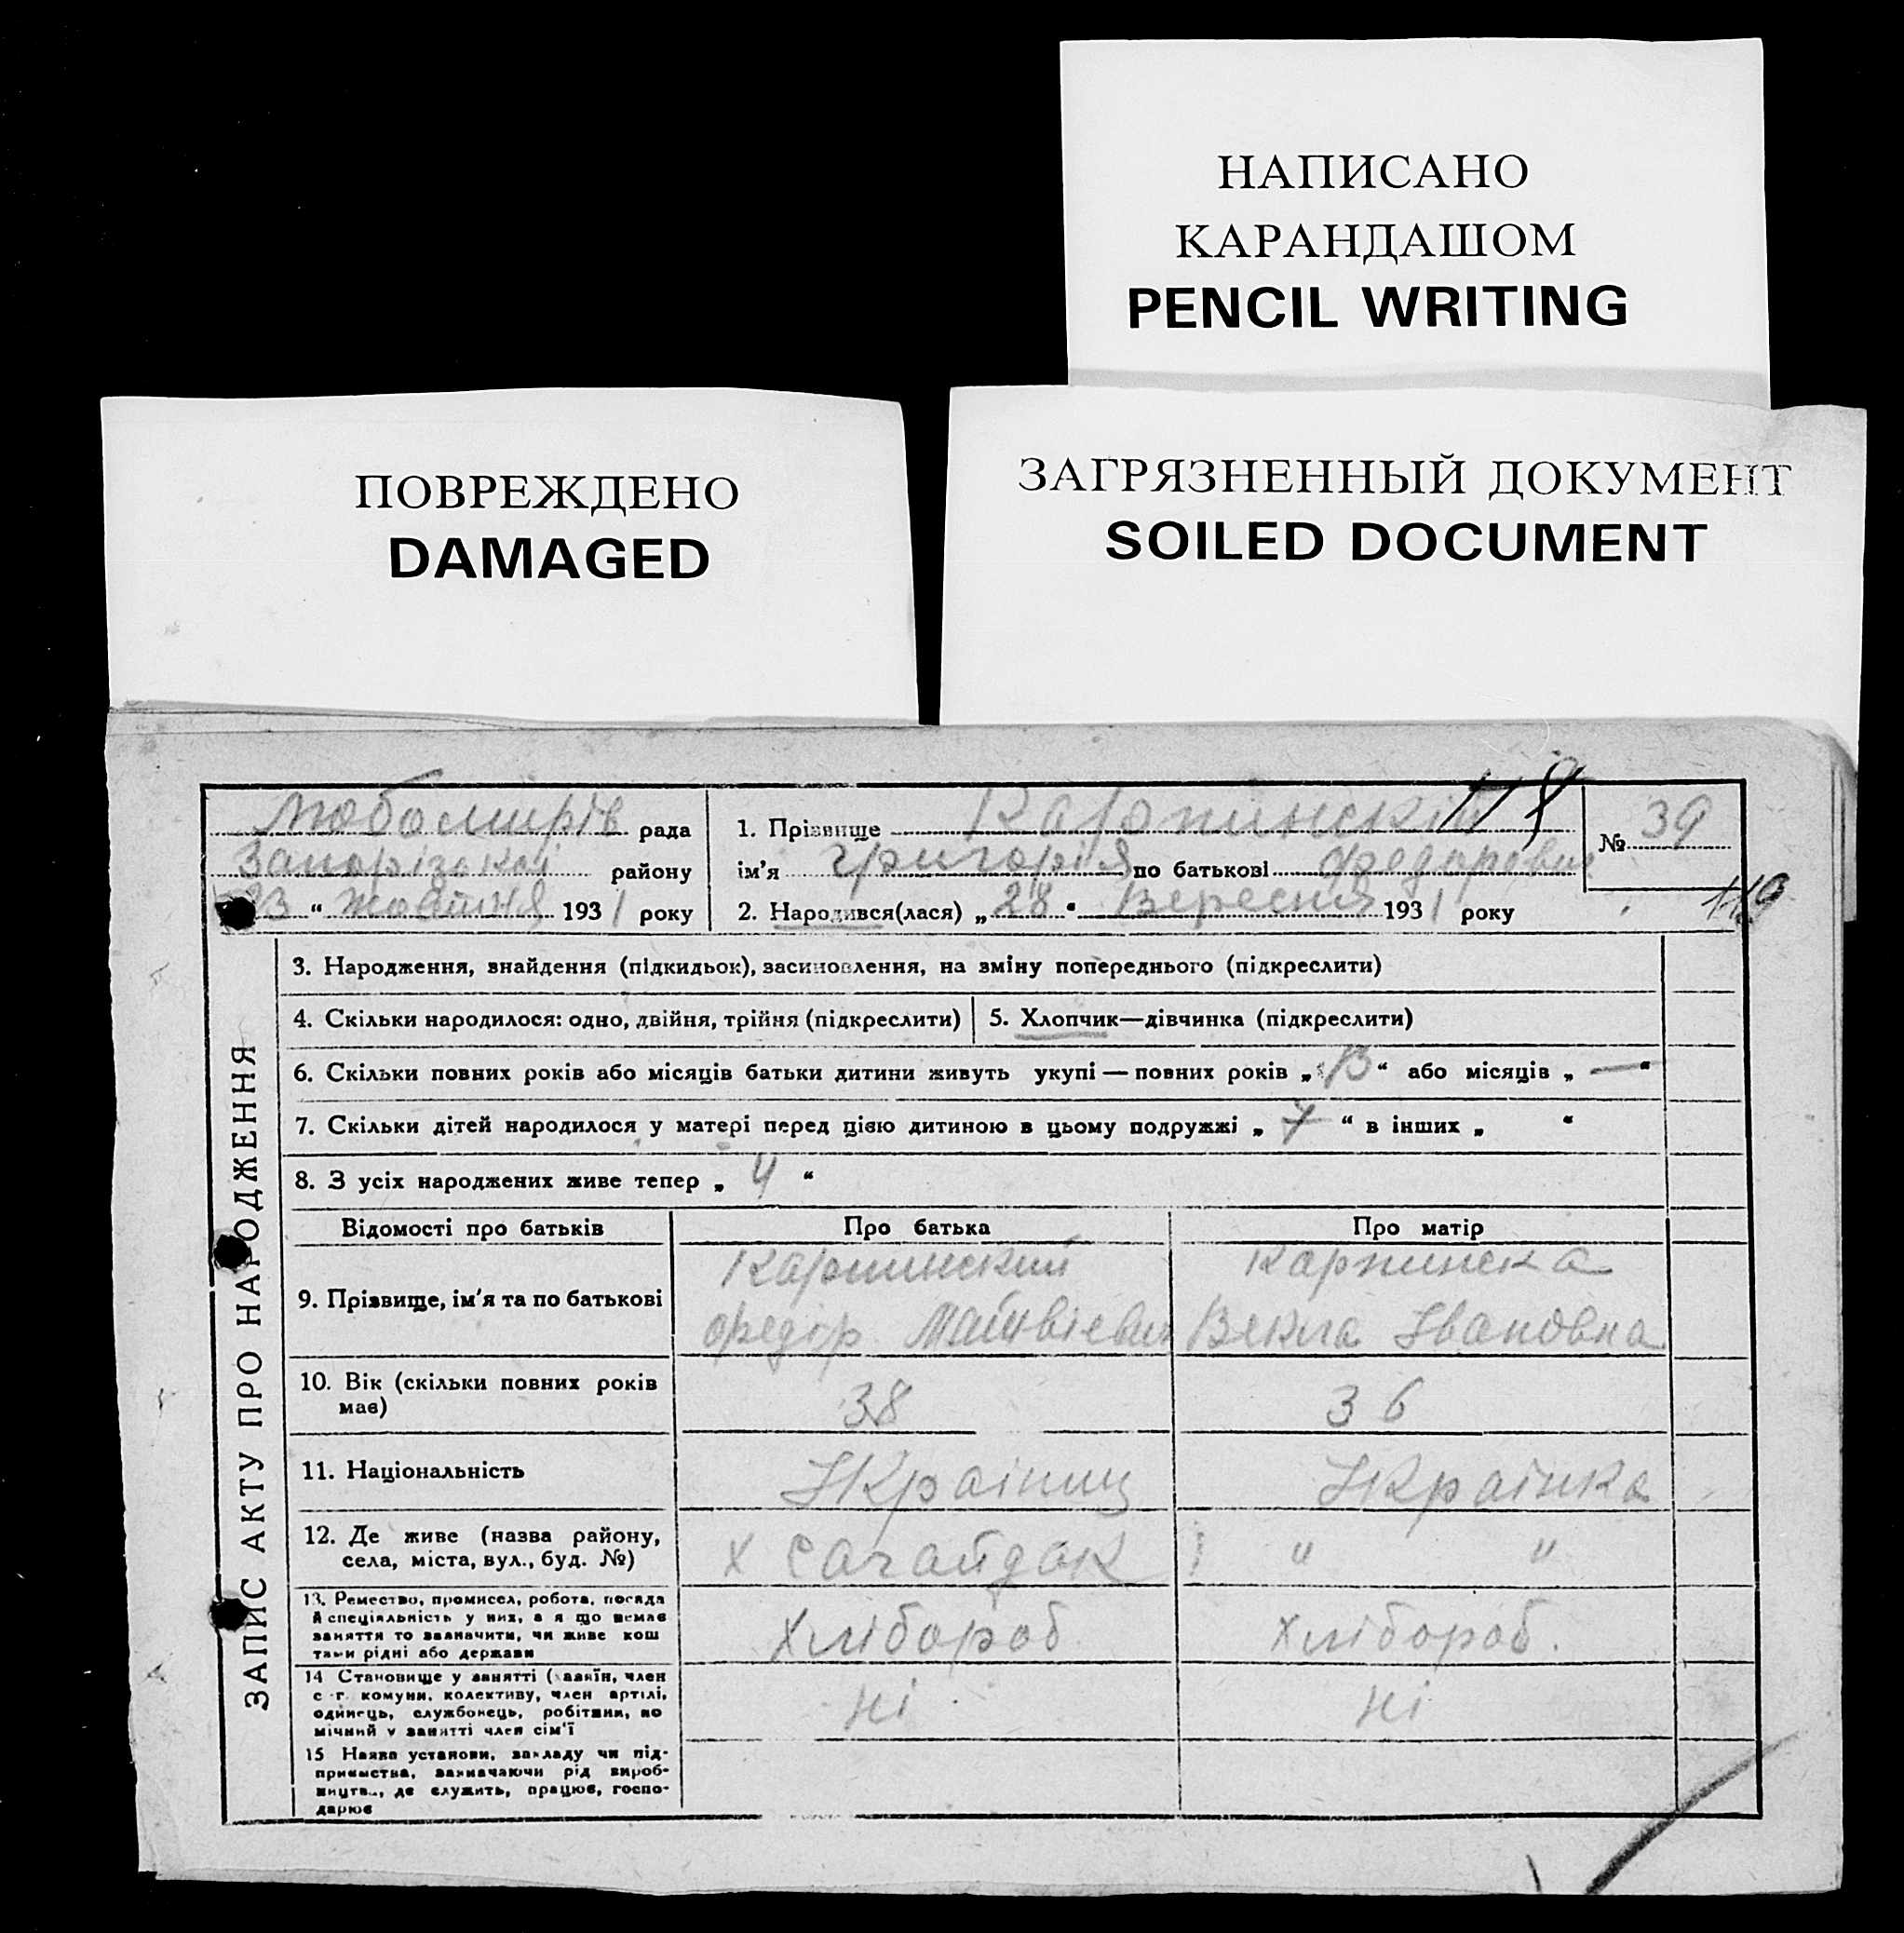 НАПИСАНО
КАРАНДАШОМ
PENCIL WRITING
ПОВРЕЖДЕНО
DAMAGED
ЗАГРЯЗНЕННЫЙ ДОКУМЕНТ
SOILED DOCUMENT
Любомирів рада
Запорізокої району
23 " жовтня 1931 року
1. Прізвище Карпинский
ім'я Григорія по батькові Федорович
2. Народився(лася) „ 28 " Вересня 1931 року
№ 39
119
ЗАПИС АКТУ ПРО НАРОДЖЕННЯ
3. Народження, знайдення (підкидьок), засиновлення, на зміну попереднього (підкреслити)
4. Скільки народилося: одно, двійня, трійня (підкреслити) 5. Хлопчик—дівчинка (підкреслити)
6. Скільки повних років або місяців батьки дитини живуть укупі — повних років „ 13 " або місяців „ — "
7. Скільки дітей народилося у матері перед цією дитиною в цьому подружжі „ " в інших „ "
8. З усіх народжених живе тепер „ 4 "
Відомості про батьків Про батька Про матір
9. Прізвище, ім'я та по батькові
Карпинский
Федор Матвієвич
Карпинска
Векла Івановна
10. Вік (скільки повних років
має)
38 36
11. Національність Українц Українка
12. Де живе (назва району,
села, міста, вул., буд. №)
х Сагайдак " "
13. Ремество, промисел, робота, посада
й спеціяльність у них, а я що немає
заняття то зазначити, чи живе кош
тами рідні або держави
Хлібороб Хлібороб.
14 Становище у занятті (хазяїн, член
с-г. комуни, колективу, член артілі,
одинець, службовець, робітник, по
мічний у занятті член сім'ї
ні ні
15 Назва установи, закладу чи під-
приємства, зазначаючи рід вироб-
ництва, де служить, працює, госпо-
дарює